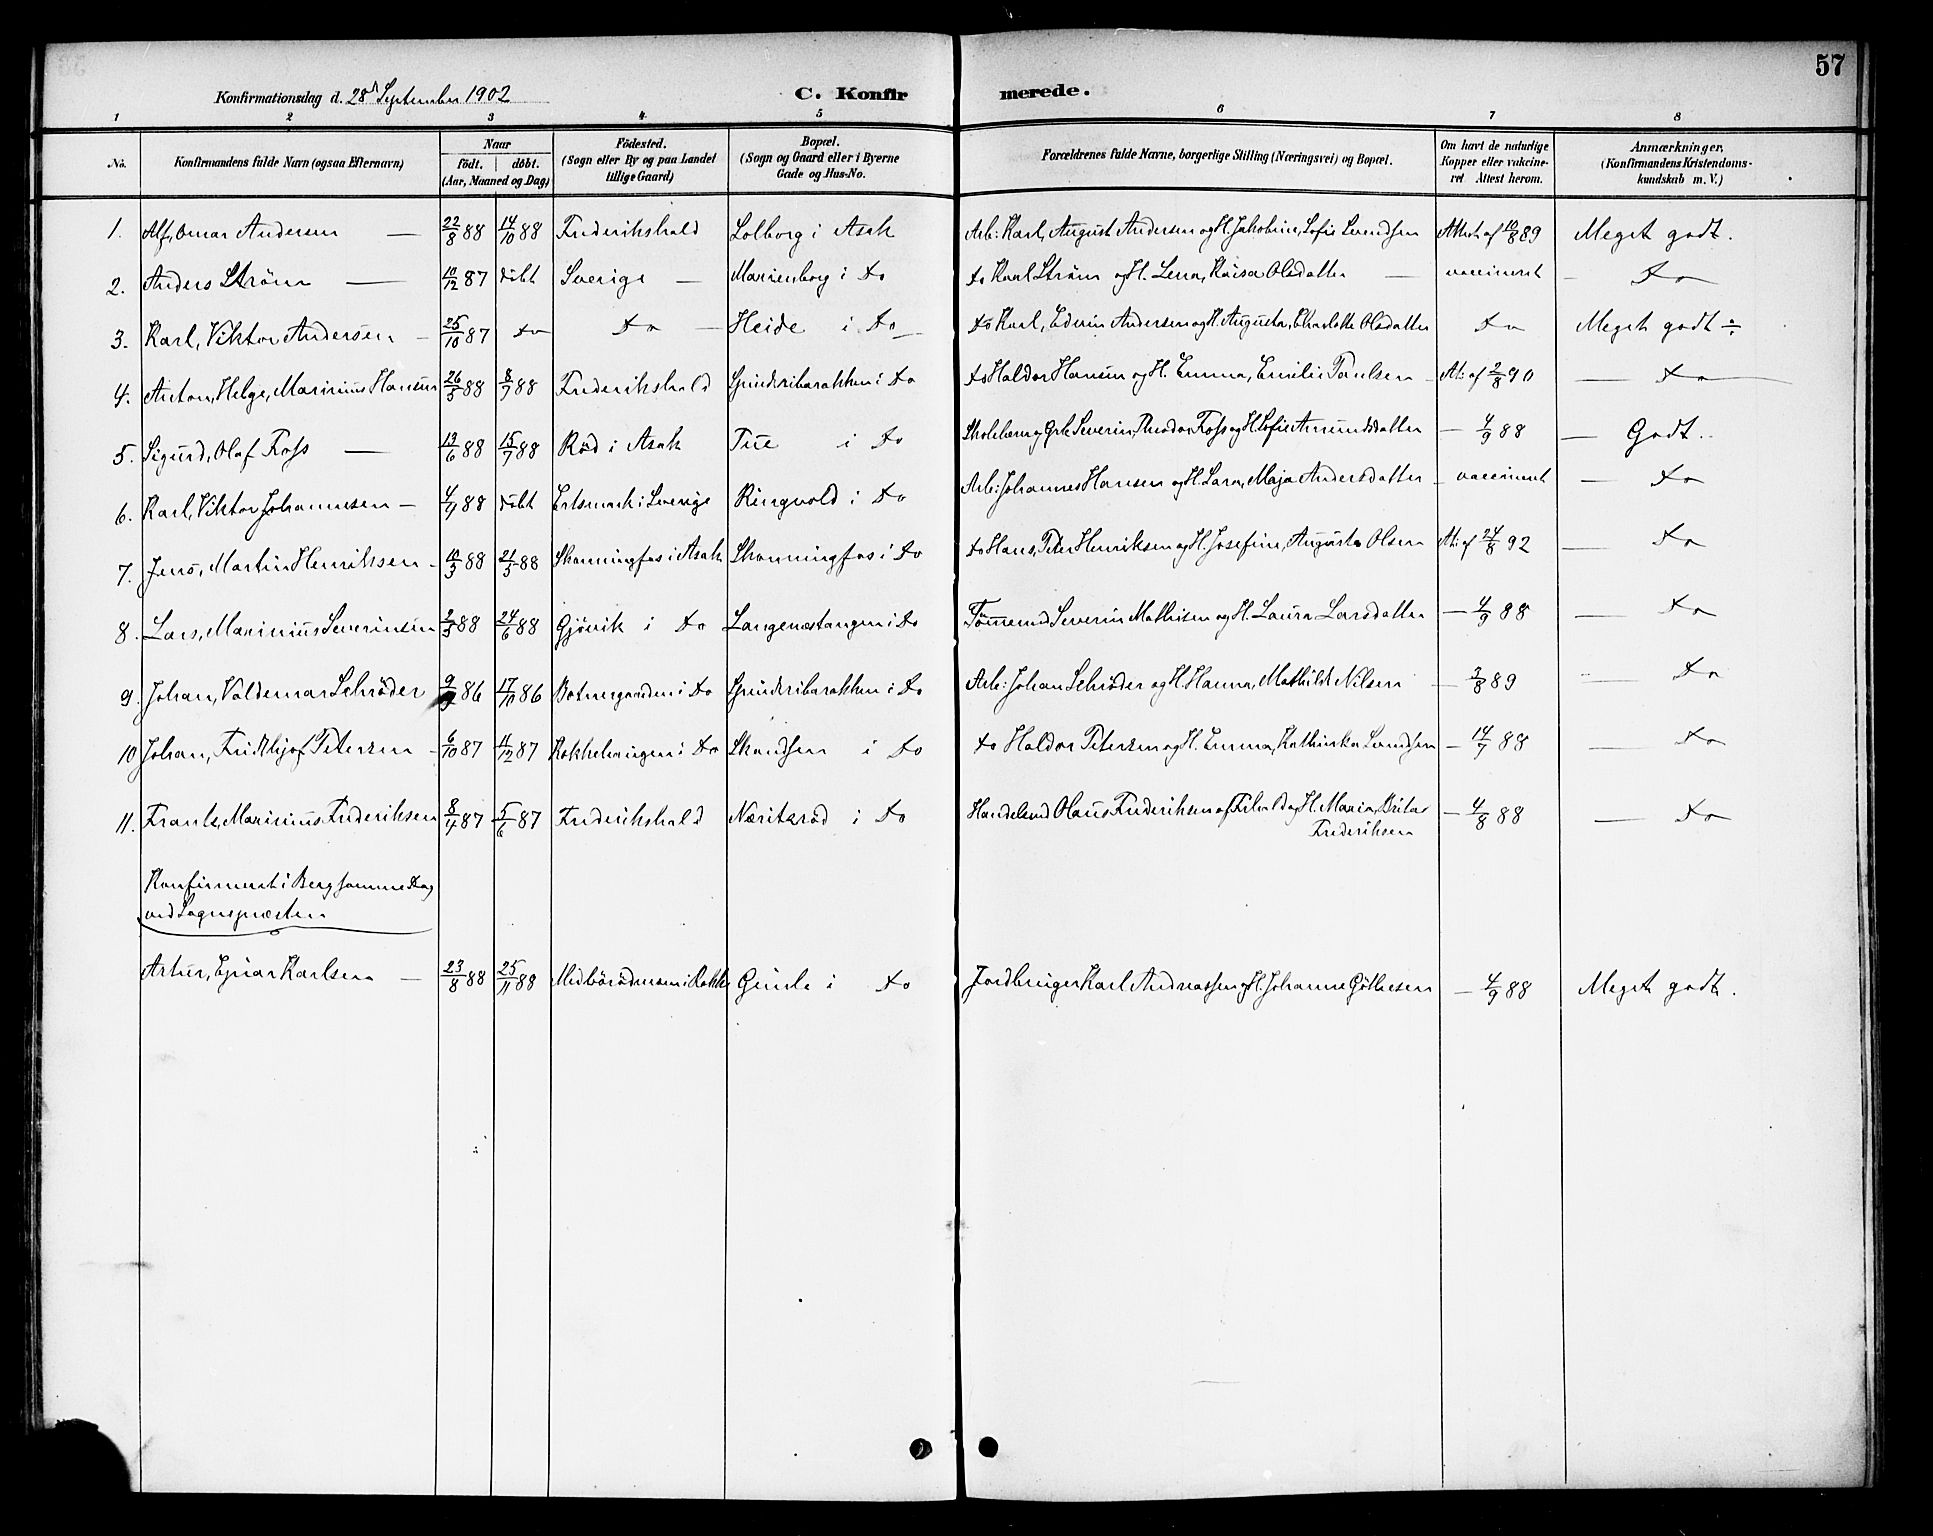 57
Konfirmationsdag d. 28d September 1902 C. Konfirmerede.
1 2 3 4 5 6 7 8
No. Konfirmandens fulde Navn (ogsaa Efternavn) Naar födt. döbt. (Aar, Maaned og Dag) Födested. (Sogn eller By og paa Landet tillige Gaard) Bopæl. (Sogn og Gaard eller i Byerne Gade og Hus-No. Forældrenes fulde Navne, borgerlige Stilling (Næringsvei) og Bopæl. Om havt de naturlige Kopper eller vakcineret Attest herom. Anmærkninger, (Konfirmandens Kristendomskundskab m. V.)
1. Alf, Omar Andersen — 22/8 88 14/10 88 Frederikshald Solborg i Asak Arb: Karl, August Andersen og H. Jakobine, Sofie Svendsen Attest af 19/8 89 Meget godt.
2. Anders Ström — 10/12 87 döbt Sverige — Marienborg i do do Karl Ström og H. Lena, Kaisa Olsdatter — vaccineret — do
3. Karl, Viktor Andersen — 25/10 87 do do — Heide i do — do Karl, Edvin Andersen og H. Augusta, Charlotte Olsdatter do Meget godt ÷
4. Anton, Helge, Marinius Hansen 26/5 88 8/7 88 Frederikshald Spinderibarakken i do do Haldor Hansen og H. Emma, Emilie Paulsen — At: af 2/8 90 — do
5. Sigurd, Olaf Foss — 13/6 88 15/7 88 Röd i Asak Tue i do Skolelærer og Grb Severin, Theodor Foss og H. Sofie Amundsdatter — 4/9 88 — Godt..
6. Karl, Viktor Johannesen — 4/4 88 döbt Ertemark i Sverige Ringvold i do Arb: Johannes Hansen og H. Lara, Maja Andersdatter — vaccineret — do
7. Jens, Martin Henriksen — 10/3 88 21/5 88 Skonningfos i Asak Skonningfos i do do Hans, Peter Henriksen og H. Josefine, Augusta Olsen At: af 24/8 92 — do
8. Lars, Marinius Severinsen 2/5 88 24/6 88 Gjövik i do Langenæstangen i do Tömmermd Severin Mathisen og H. Laura Larsdatter — 4/9 88 — do
9. Johan, Valdemar Schröder 9/9 86 17/10 86 Botnergaarden i do Spinderibarakken i do Arb: Johan Schröder og H. Hanna, Mathilde Nilsen — 3/8 89 — do
10 Johan, Fridthjof Petersen — 6/10 87 11/12 87 Rokkehaugen i do Skandsen i do do Haldor Petersen og H. Emma, Kathinka Svendsen — 14/7 88 — do
11. Frants, Marinius Frederiksen 8/4 87 5/6 87 Frederikshald Næridsröd i do Handelsmd Olaus Frederiksen af Frhald og H. Maria, Brita Frederiksen — 4/8 88 — do
Konfirmeret i Berg samme Dag
ved Sognepræsten
Artur, Ejnar Karlsen — 23/8 88 25/11 88 i Rokke Gimle i do Jordbruger Karl Andreassen og H. Johanne — 4/9 88 Meget godt.